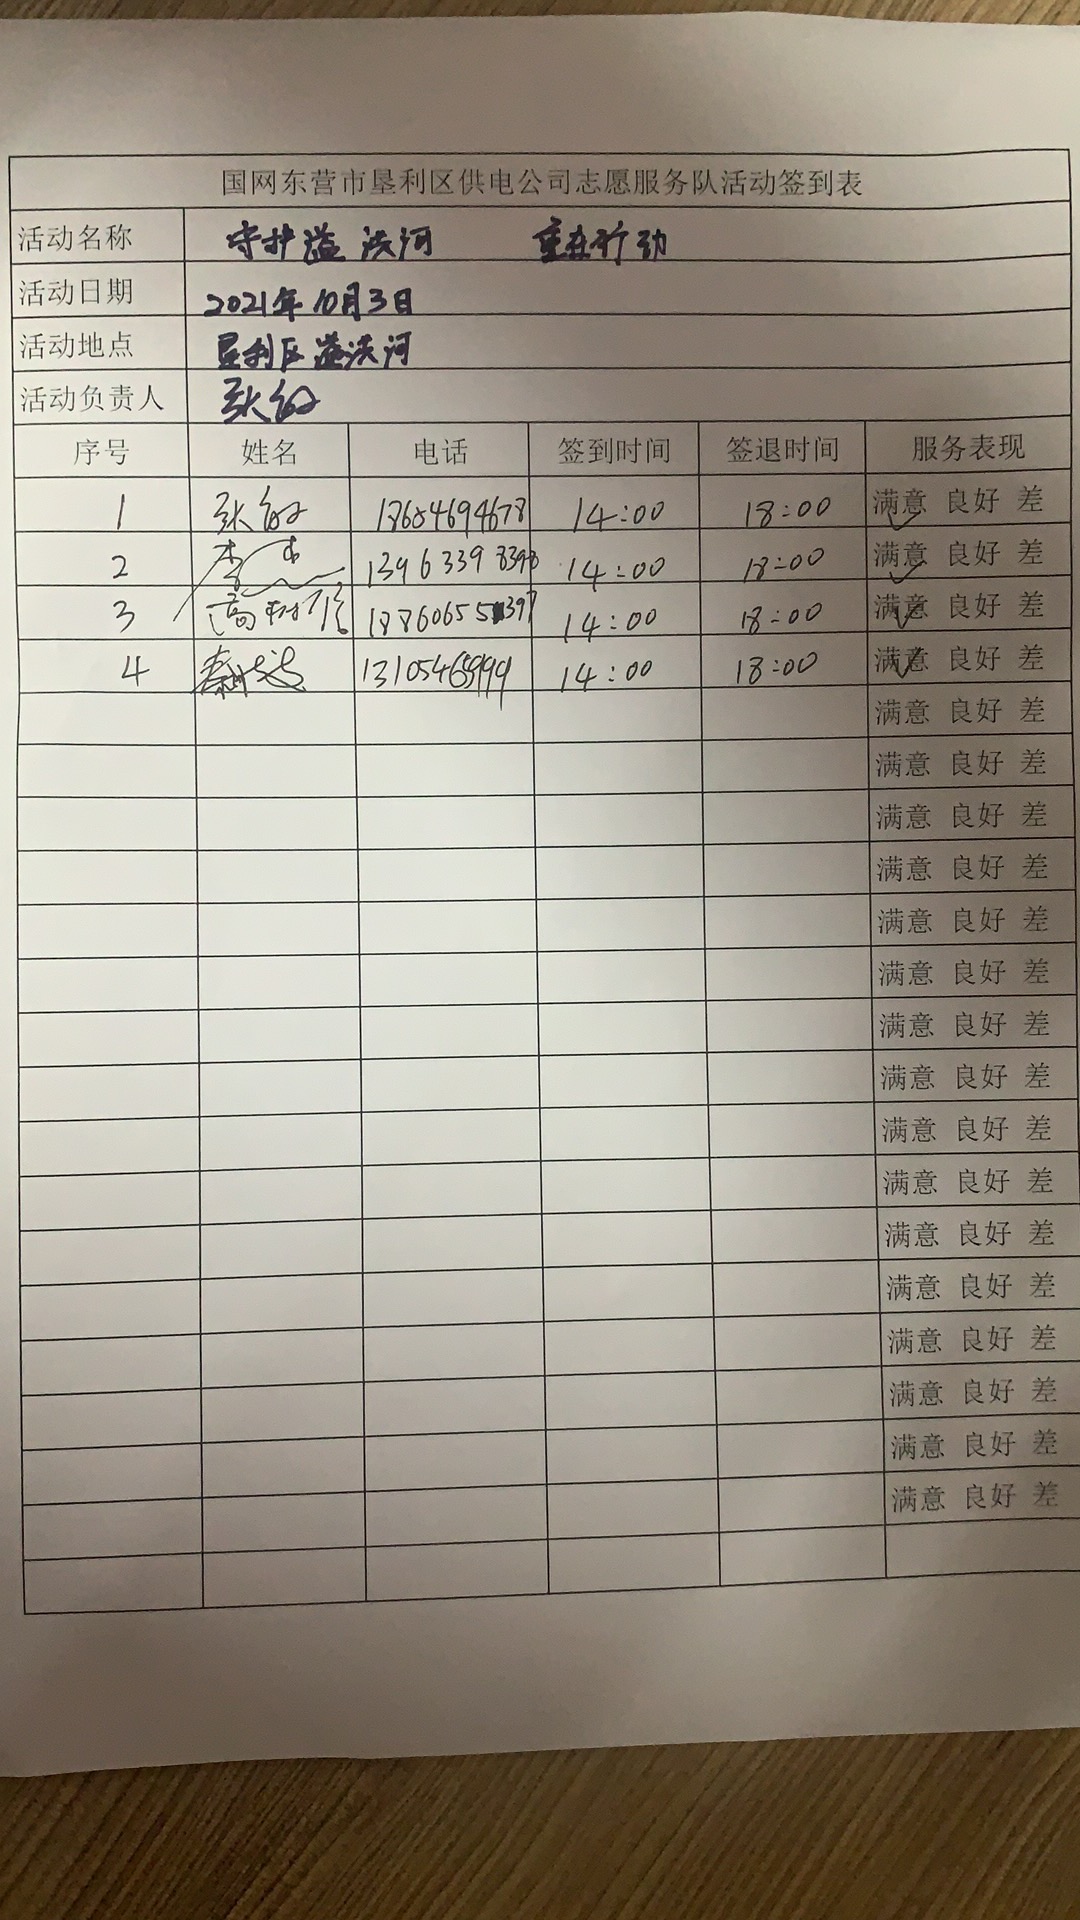 国网东营市垦利区供电公司志愿服务队活动签到表
活动名称 守护溢洪河 重在行动
活动日期 2021年10月3日
活动地点 垦利区溢洪河
活动负责人 张
序号 姓名 电话 签到时间 签退时间 服务表现
1 张 18654694678 14:00 18:00 满意 良好 差
2 李 13963398398 14:00 18:00 满意 良好 差
3 高 14:00 18:00 满意 良好 差
4 秦 14:00 18:00 满意 良好 差
满意 良好 差
满意 良好 差
满意 良好 差
满意 良好 差
满意 良好 差
满意 良好 差
满意 良好 差
满意 良好 差
满意 良好 差
满意 良好 差
满意 良好 差
满意 良好 差
满意 良好 差
满意 良好 差
满意 良好 差
满意 良好 差